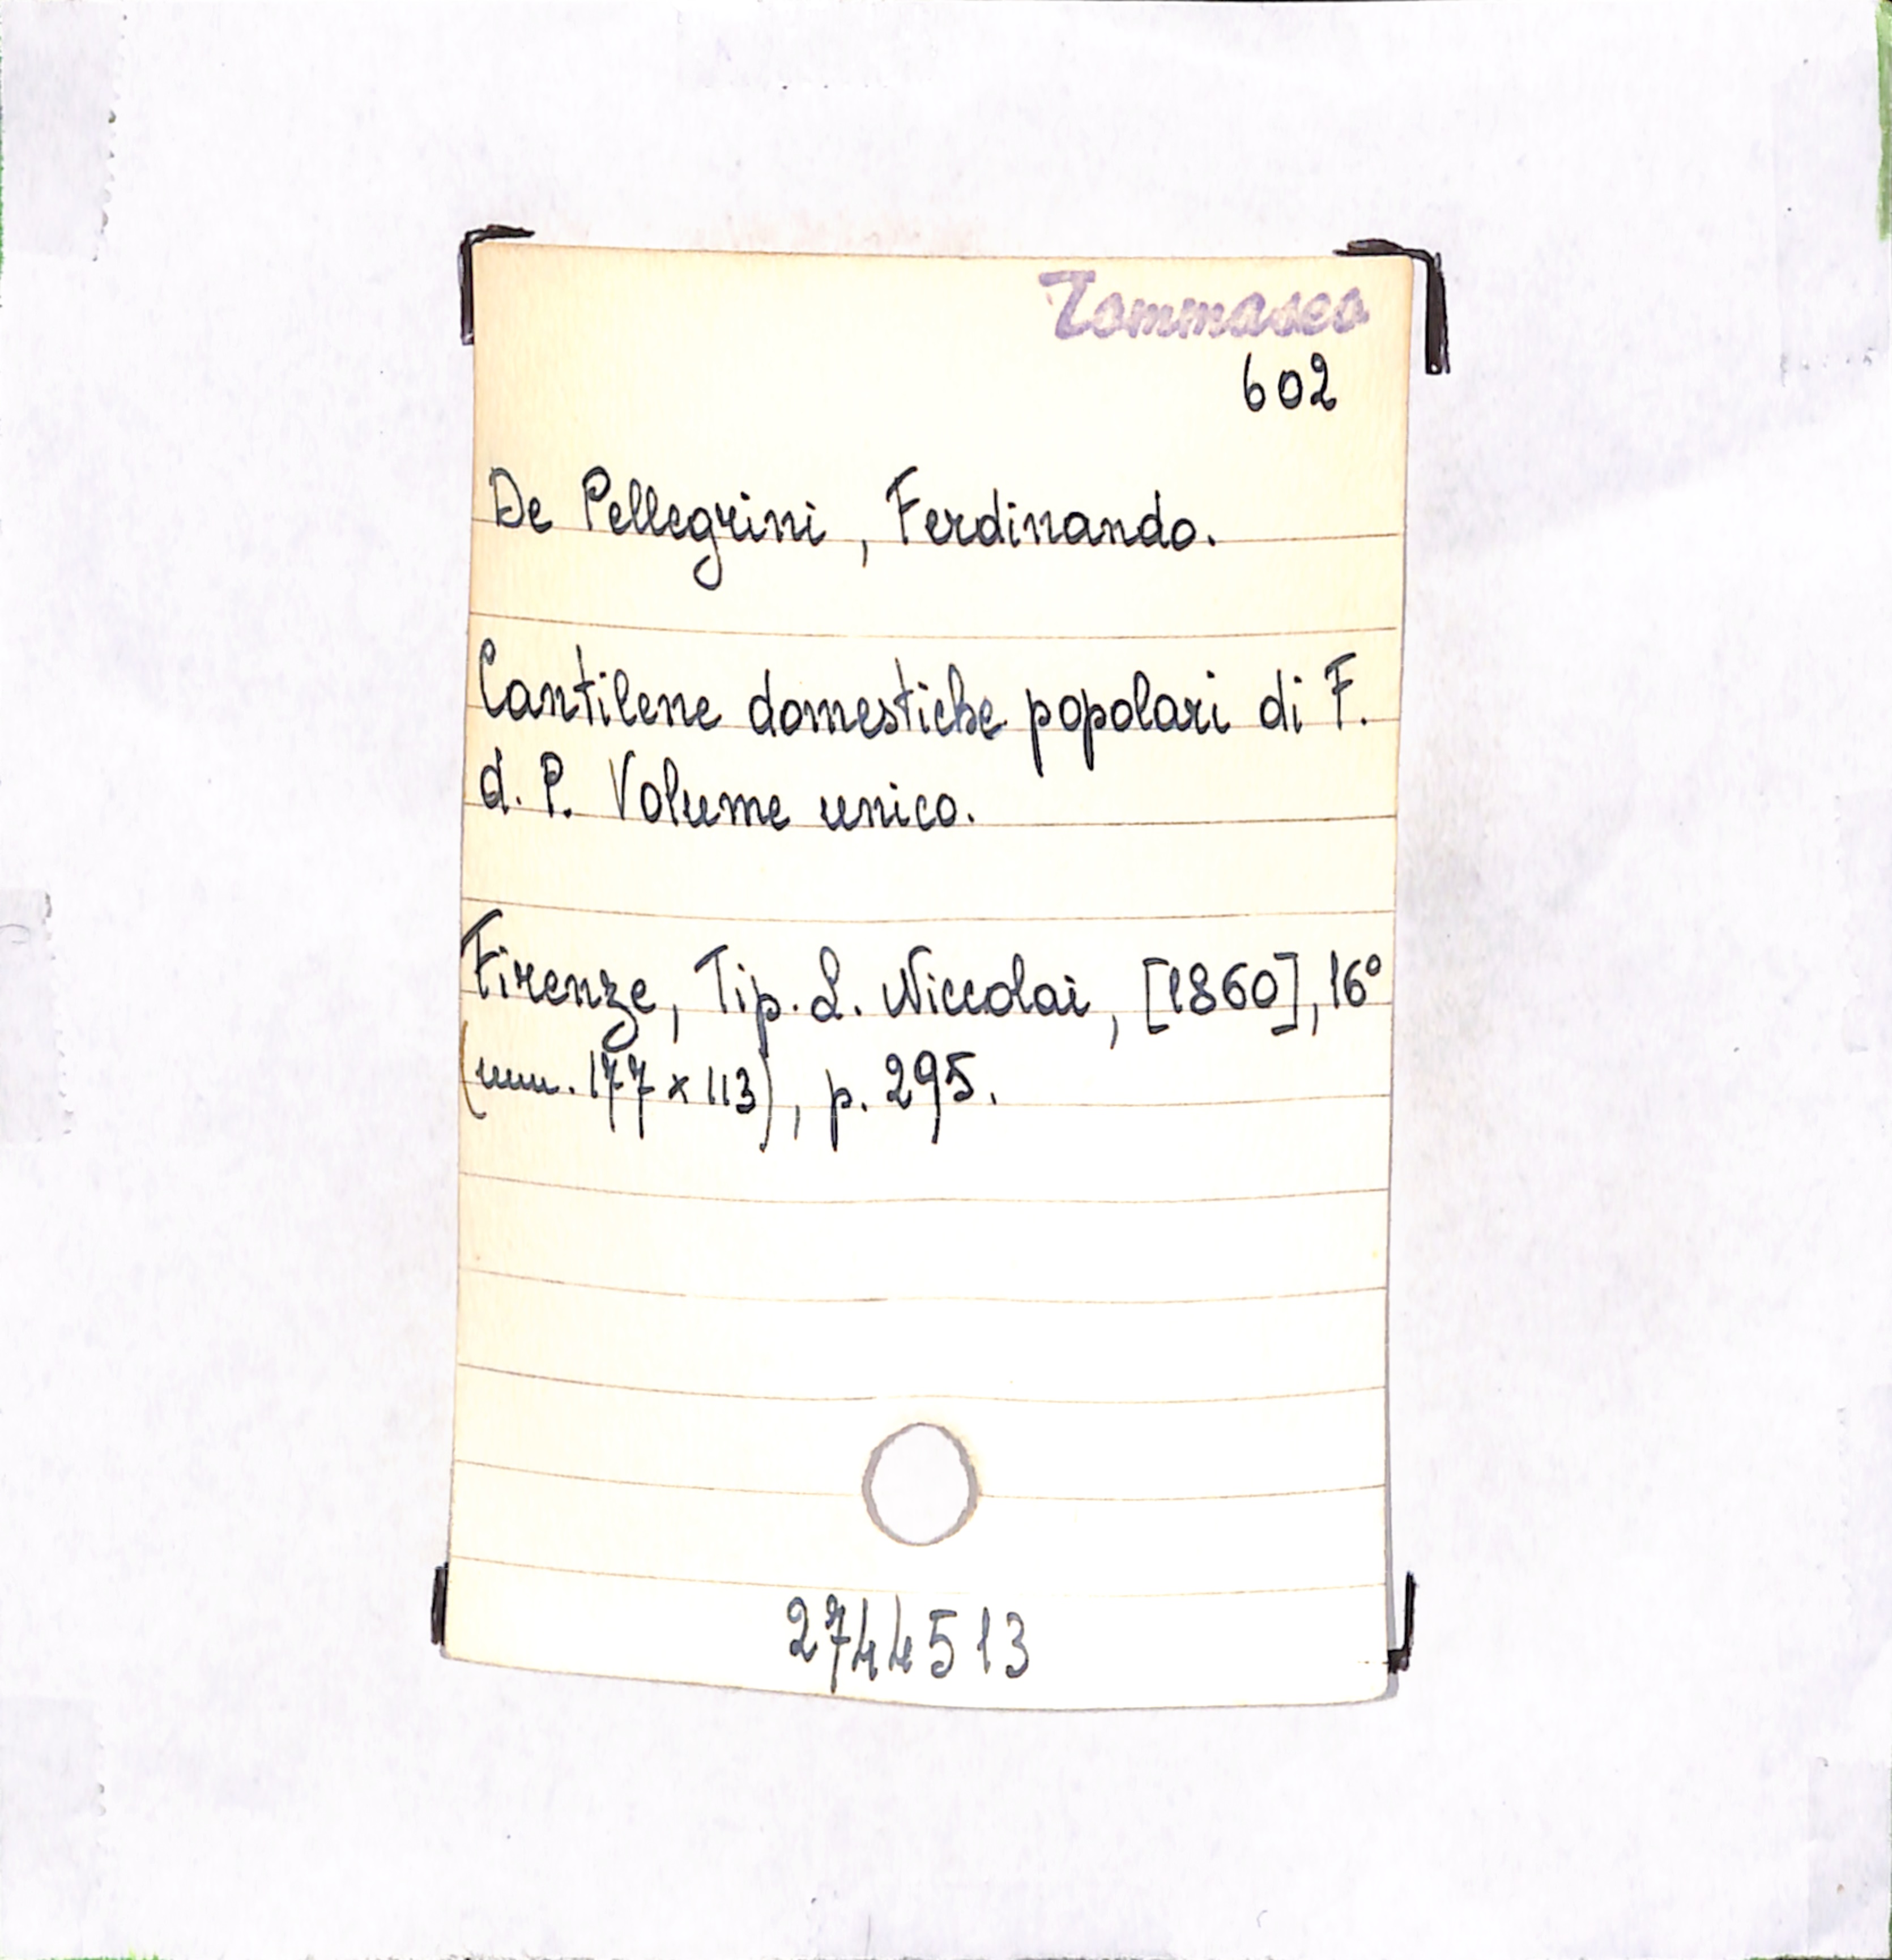 Tommaseo
602
De Pellegrini, Ferdinando.
Cantilene domestiche popolari di F.
d. P. Volume unico.
Firenze, Tip. L. Niccolai, [1860], 16°
(mm. 177 x 113), p. 295.
2744513